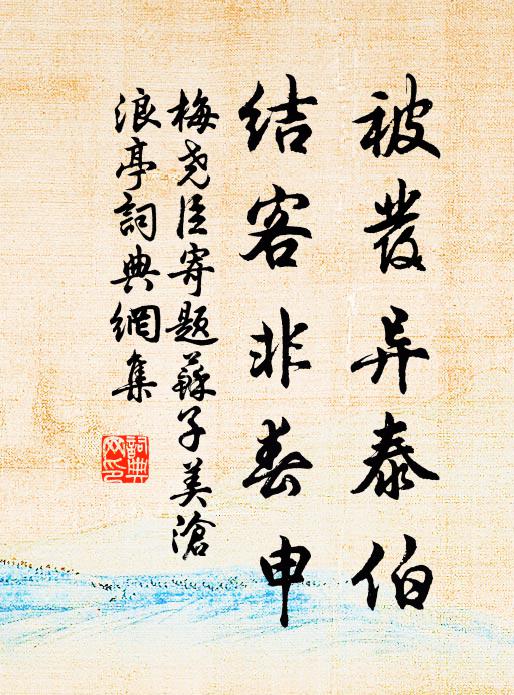 被發异泰伯
结客非春申
梅尧臣寄题蘇子美滄
浪亭詞典網集
詞典